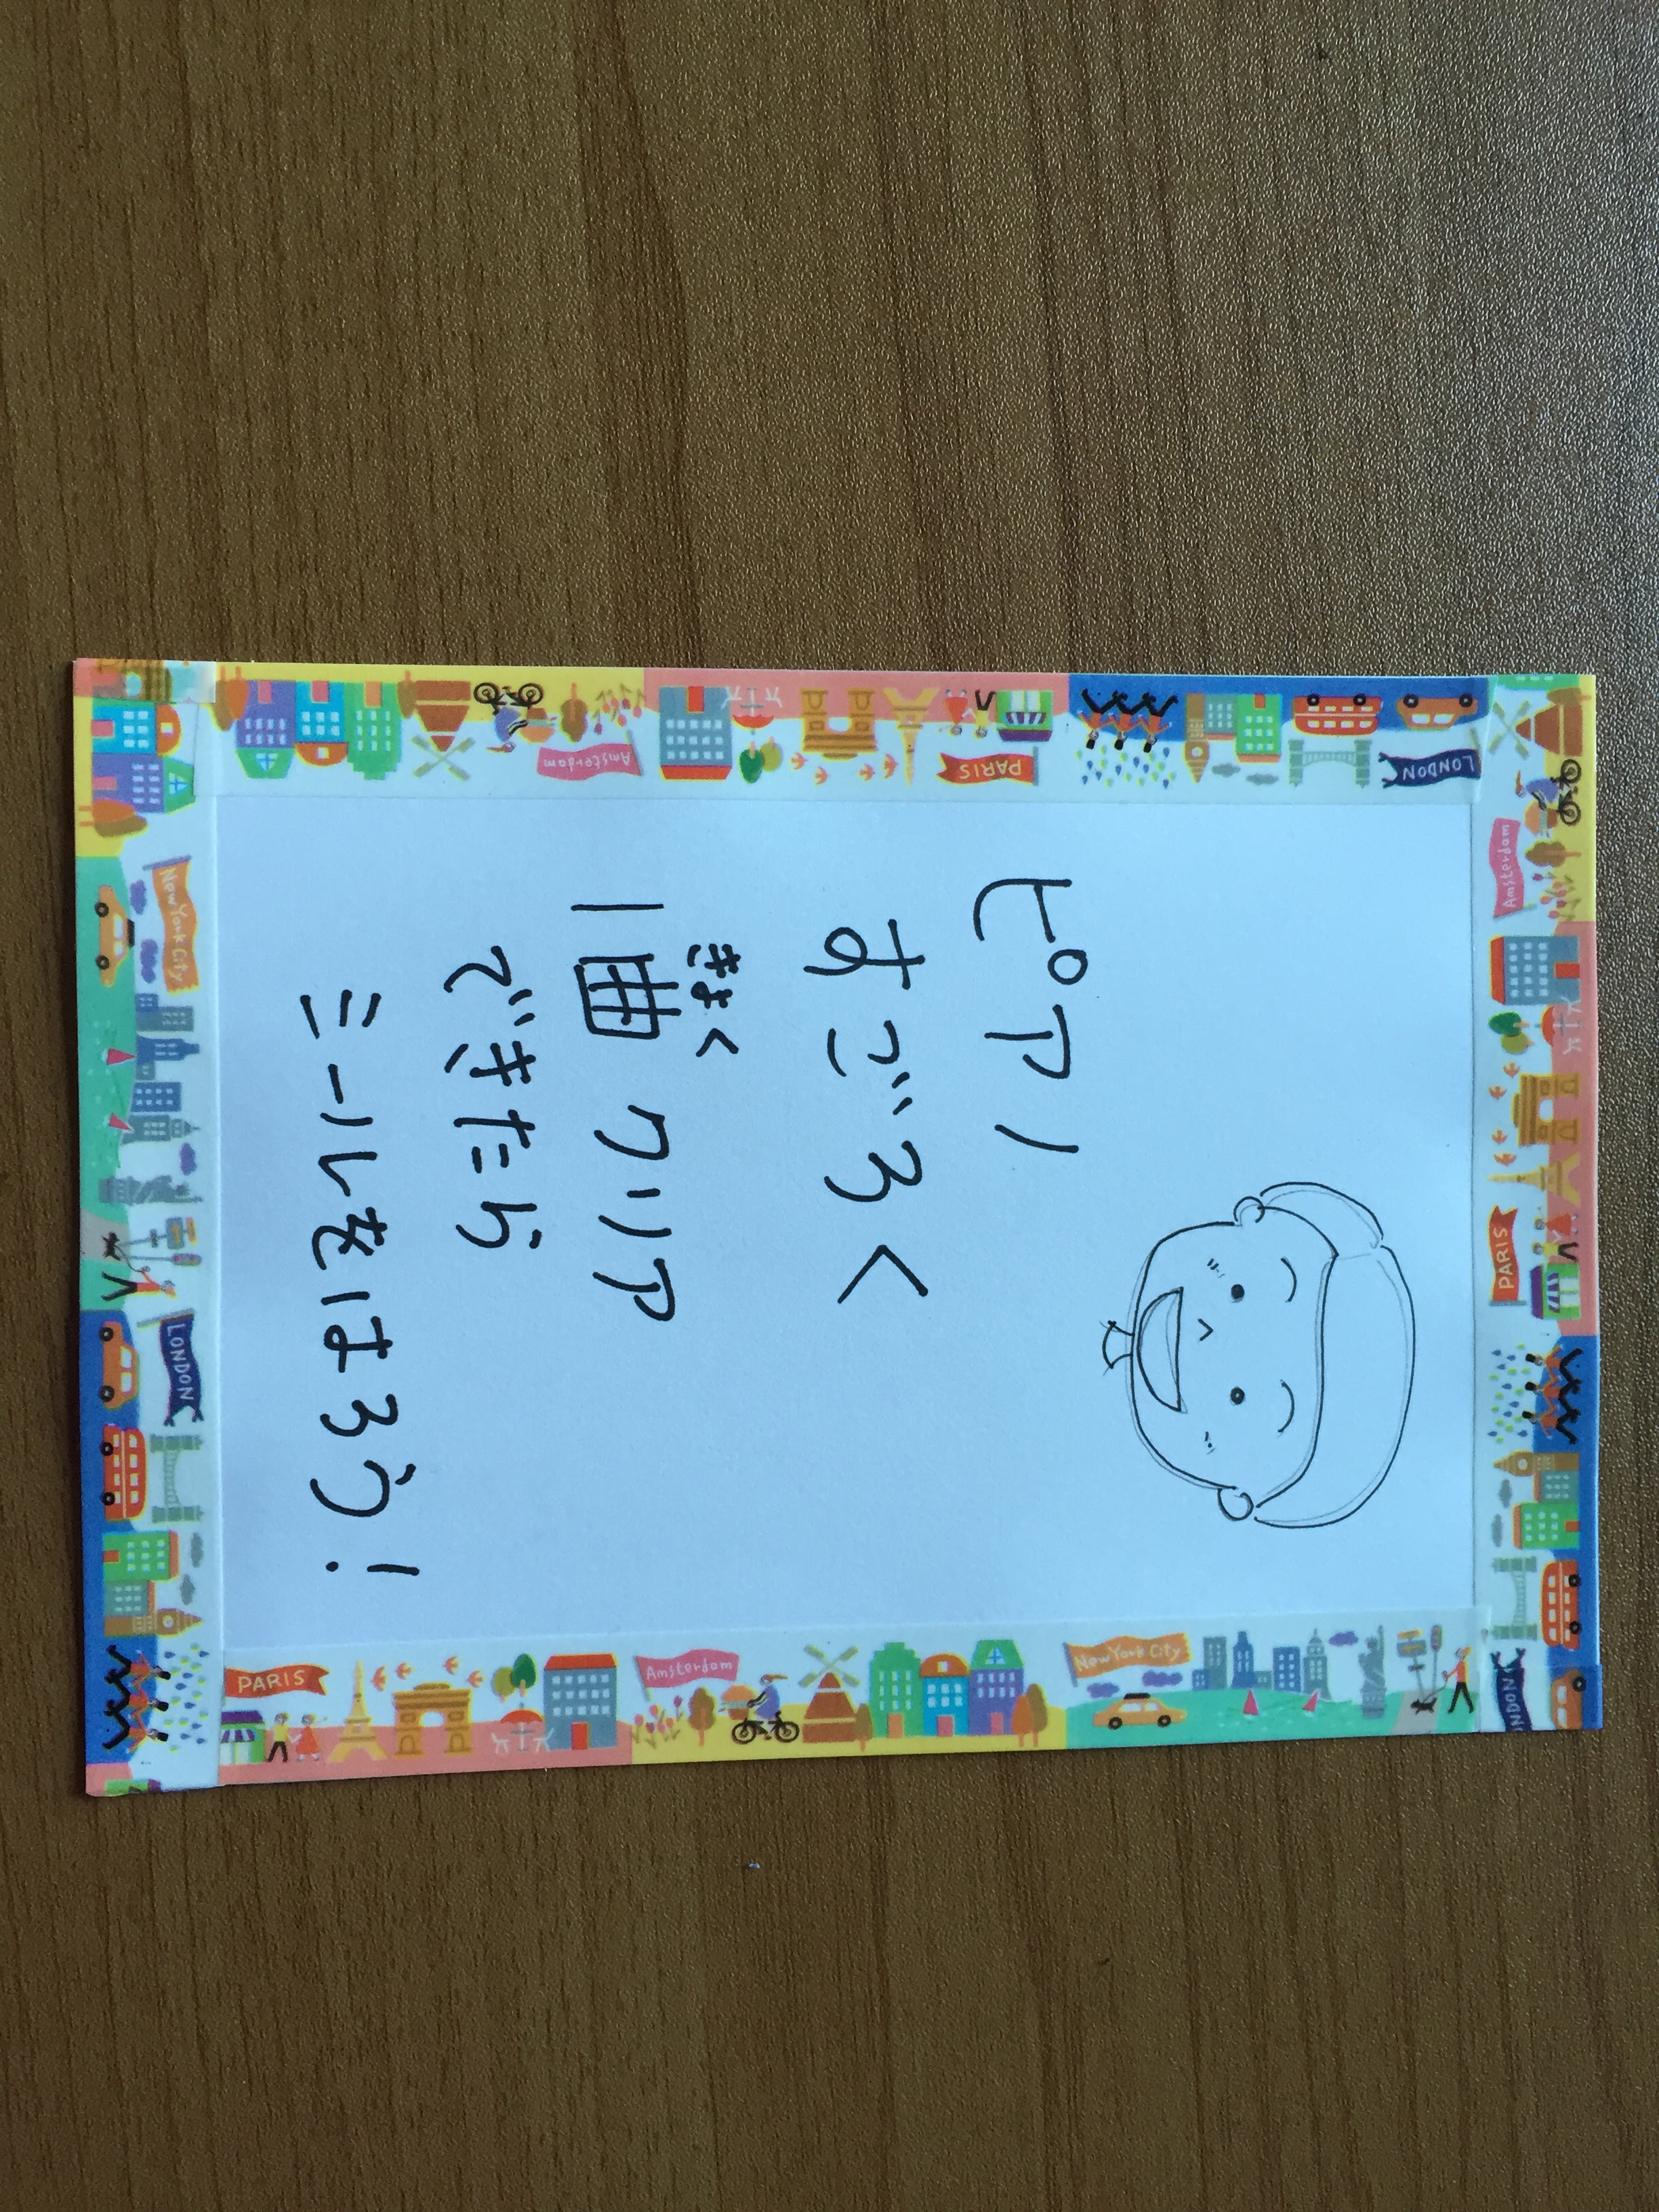 Amsterdam
PARIS
LONDON
LONDON
PARIS
Amsterdam
ピアノ
すごろく
きょく
1曲 クリア
できたら
シールをはろう!
New York City
Amsterdam
PARIS
New York City
LONDON